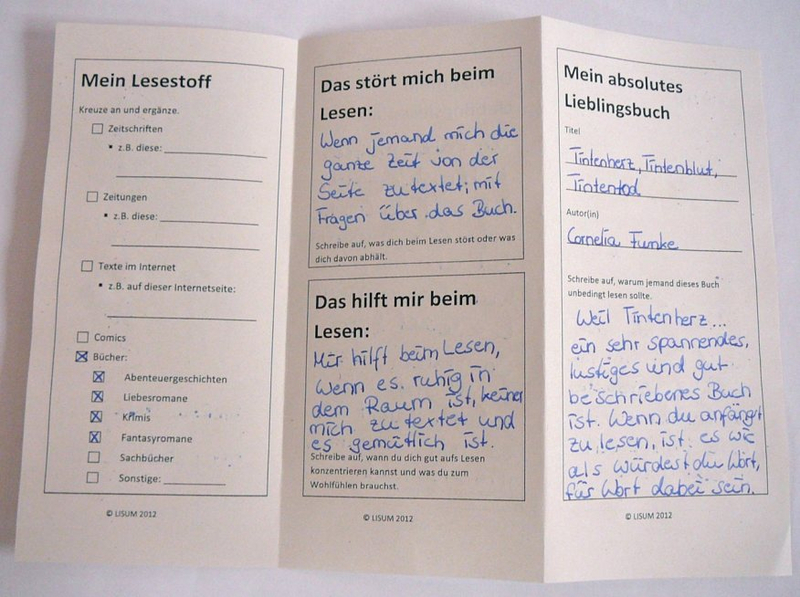 Mein Lesestoff
Kreuze an und ergänze.
Zeitschriften
z.B. diese:
Zeitungen
z.B. diese:
Texte im Internet
z.B. auf dieser Internetseite:
Comics
Bücher:
Abenteuergeschichten
Liebesromane
Krimis
Fantasyromane
Sachbücher
Sonstige:
© LISUM 2012
Das stört mich beim
Lesen:
Wenn jemand mich die
ganze Zeit von der
Seite zutextet; mit
Fragen über das Buch.
Schreibe auf, was dich beim Lesen stört oder was
dich davon abhält.
Das hilft mir beim
Lesen:
Mir hilft beim Lesen,
wenn es ruhig in
dem Raum ist, keiner
mich zutextet und
es gemütlich ist.
Schreibe auf, wann du dich gut aufs Lesen
konzentrieren kannst und was du zum
Wohlfühlen brauchst.
© LISUM 2012
Mein absolutes
Lieblingsbuch
Titel
Tintenherz, Tintenblut,
Tintentod
Autor(in)
Cornelia Funke
Schreibe auf, warum jemand dieses Buch
unbedingt lesen sollte.
Weil Tintenherz...
ein sehr spannendes,
lustiges und gut
beschriebenes Buch
ist. Wenn du anfängst
zu lesen, ist es wie
als würdest du Wort,
für Wort dabei sein.
© LISUM 2012